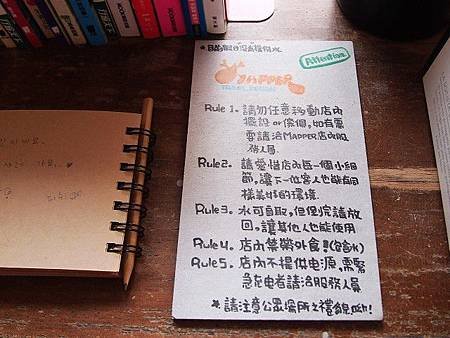 Attention
MAPPER
Rule 1. 請勿任意移動店內
擺設 or 傢俱, 如有需
要請洽MAPPER店內服
務人員.
Rule2. 請愛惜店內每一個小細
節, 讓下一位客人也能有同
樣美好的環境.
Rule3. 水可自取, 但 完請放
回, 讓其他人也能使用
Rule4. 店內禁帶外食!
Rule5. 店內不提供電源, 需緊
急充電者請洽服務人員
*請注意公眾場所之禮貌呦!